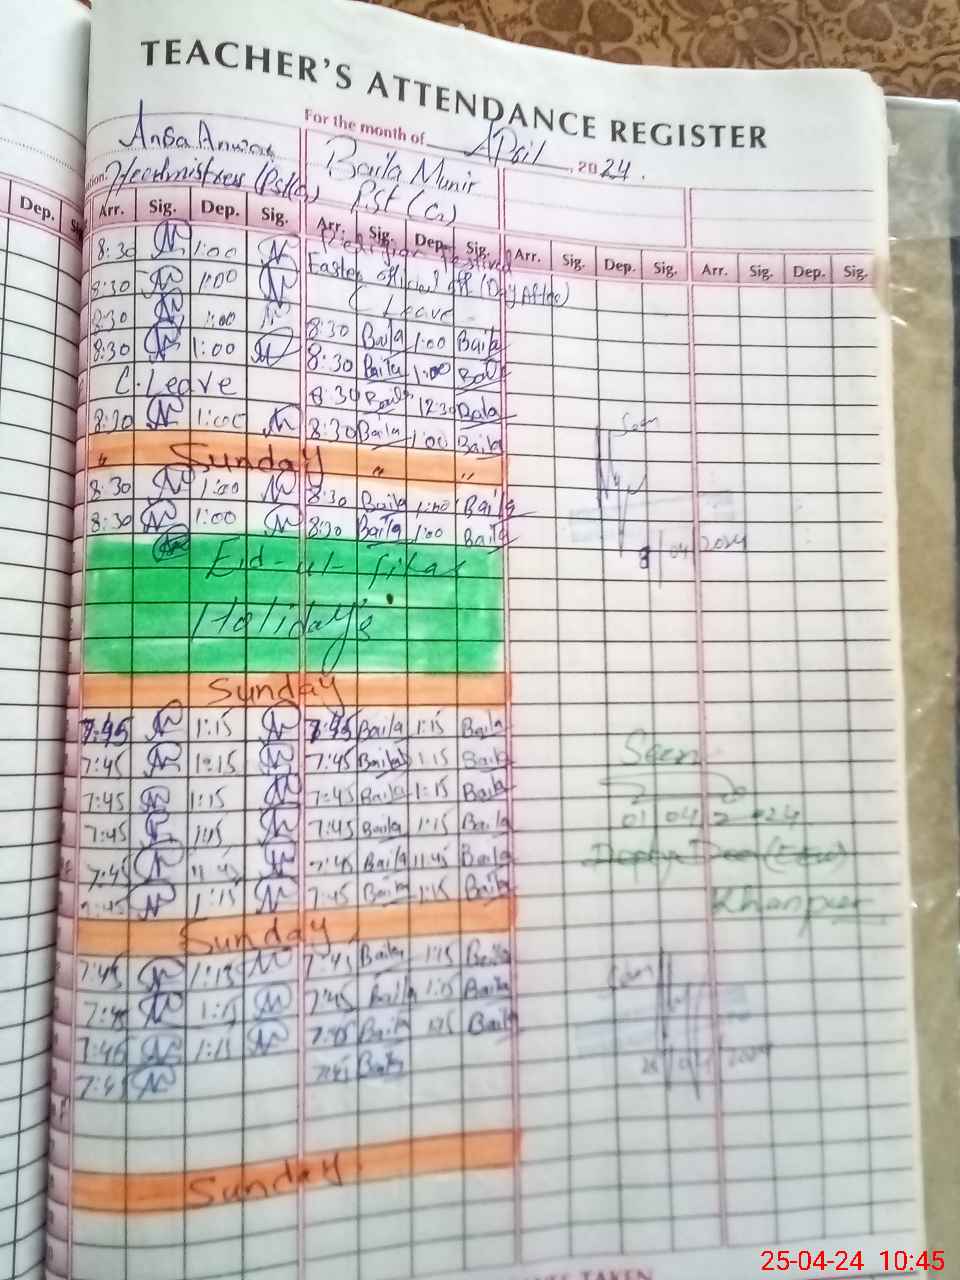 TEACHER'S ATTENDANCE REGISTER
For the month of April, 2024.
Ansa Anwar
Headmistress
Baila Munir
PST
Dep.
Arr. Sig. Dep. Sig. Arr. Sig. Dep. Sig. Arr. Sig. Dep. Sig. Arr. Sig. Dep. Sig.
8:30 1:00
8:30 1:00 Easter official off (Day After)
8:30 1:00 C Leave
8:30 1:00 8:30 Baila 1:00 Baila
C. Leave 8:30 Baila 1:00 Baila
8:30 Baila 12:30 Baila
8:30 1:00 8:30 Baila 1:00 Baila
" Sunday " "
8:30 1:00 8:30 Baila 1:00 Baila
8:30 1:00 8:30 Baila 1:00 Baila
Seen
8 04 2024
Eid-ul-Fitar
Holiday's
Sunday
7:45 1:15 7:45 Baila 1:15 Baila
7:45 1:15 7:45 Baila 1:15 Baila
7:45 1:15 7:45 Baila 1:15 Baila
7:45 1:15 7:45 Baila 1:15 Baila
7:45 11:45 7:45 Baila 11:45 Baila
7:45 1:15 7:45 Baila 1:15 Baila
Seen
04 2024
Khanpur
Sunday
7:45 1:15 7:45 Baila 1:15 Baila
7:45 1:15 7:45 Baila 1:15 Baila
7:45 1:15 7:45 Baila 1:15 Baila
7:45 7:45 Baila
Seen
Sunday.
TAKEN
25-04-24 10:45